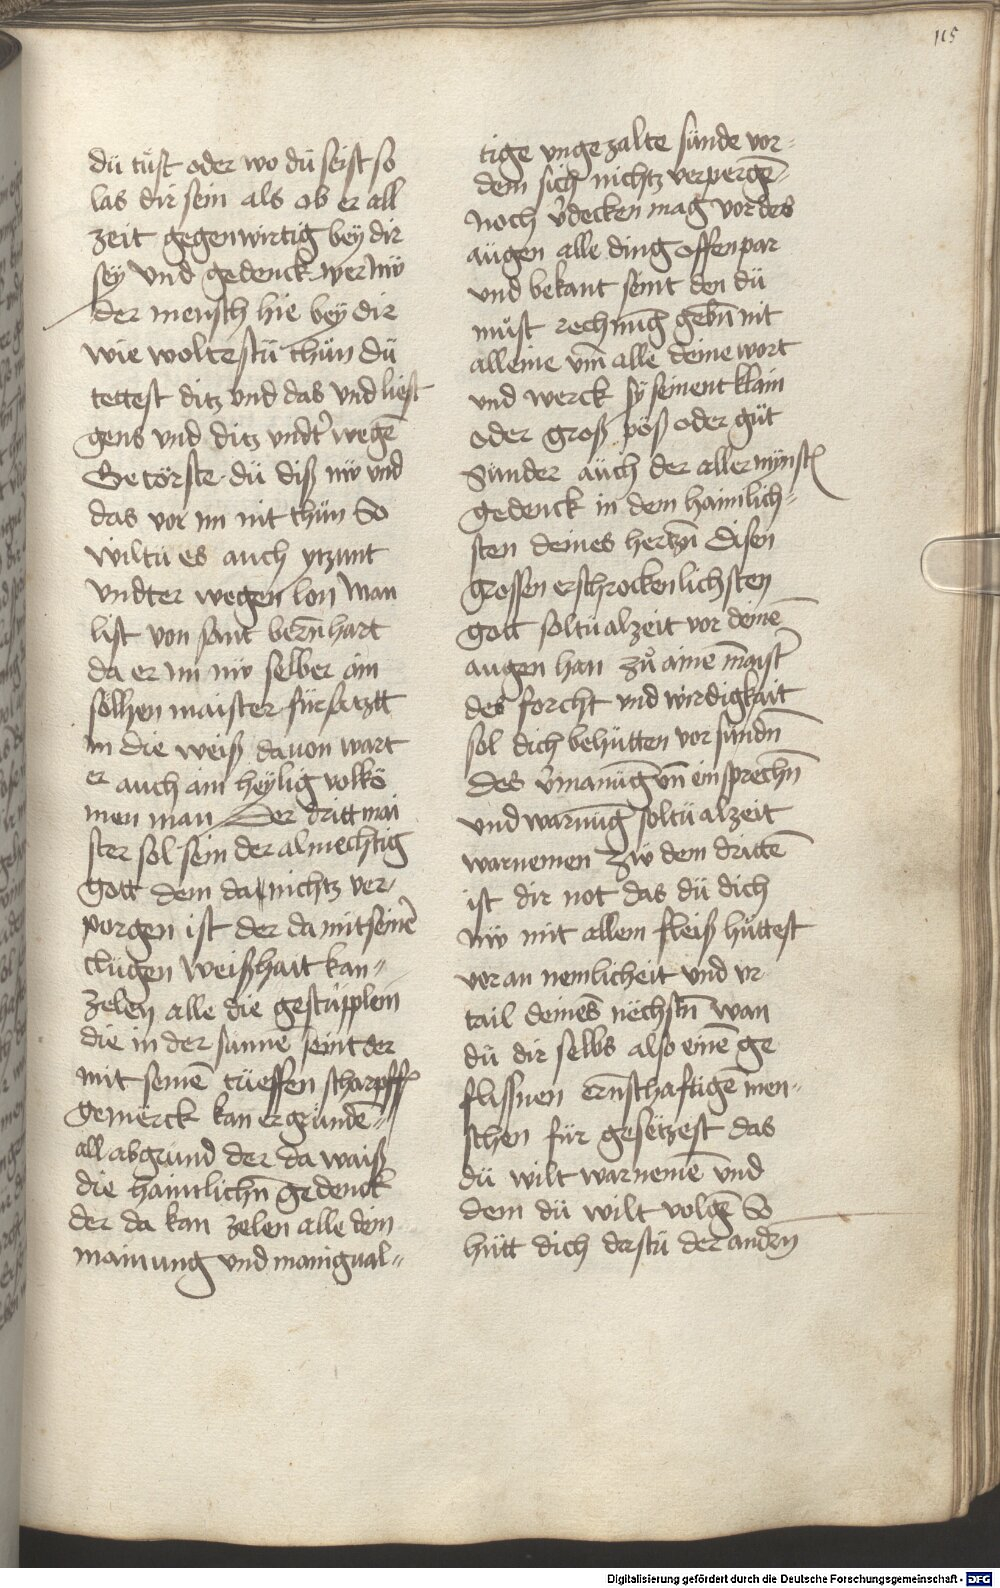 115
dü tuͤst oder wo dü seist so
las dir sein als ob er all
zeit gegenwirtig bey dir
sey Vnd gedenck wer nw
der mensch hie bey dir
wie woltestü thün dü
tettest ditz vnd das vnd liest
gens vnd ditz vndt̉ wegē
Getörste dü diß nw vnd
das vor im nit thün So
wiltü es auch ytzunt
vndter wegen lon Man
list von sant bern̄hart
da er im nw selber ain
sölhen maister fürsatztt
in die weiß dauon wart
er auch ain heylig volkō
men man Der dritt mai
ster sol sein der almechtig
gott dem da nichtz ver-
porgen ist der da mit seinē
clügen weißhait kan-
zelen alle die gestüpplein
die in der sunne seint der
mit seinē tüeffen scharpff
gemërck kan ergründē-
all abgrund der da waiß
die haimlichn̄ gedenck
der da kan zelen alle dein
mainung vnd manigual-
tige vngezalte sünde vor-
dem sich nichtz verpergē-
noch v̉decken mag vor des
aügen alle ding offenpar
vnd bekant seint den dü
muͤst rechnūg gebn̄ nit
alleine vm̄ alle deine wort
vnd werck sy seinent klain
oder groß pöß oder güt
Sunder aüch der aller mynst
gedenck in dem haimlich-
sten deines hertzn̄ Disen
grossen erschrockenlichsten
gott soltü alzeit vor deinē
augen han zuͦ ainē maist̉
des forcht vnd wirdigkait
sol dich behütten vor sündn̄
des v̉manūg vn̄ einsprechn̄
vnd warnūg soltü alzeit
warnemen Zw dem drittē
ist dir not das dü dich
nw mit allem fleiß huͤttest
vor an nemlicheit vnd vr
tail deines nëchstn̄ wan
dü dir selbs also einē ge
flissnen ern̄schaftigē men-
schen für gesëtzest das
dü wilt warnemē vnd
dem dü wilt volgē So
hütt dich dastü der andrn
Digitalisierung gefördert durch die Deutsche Forschungsgemeinschaft - DFG